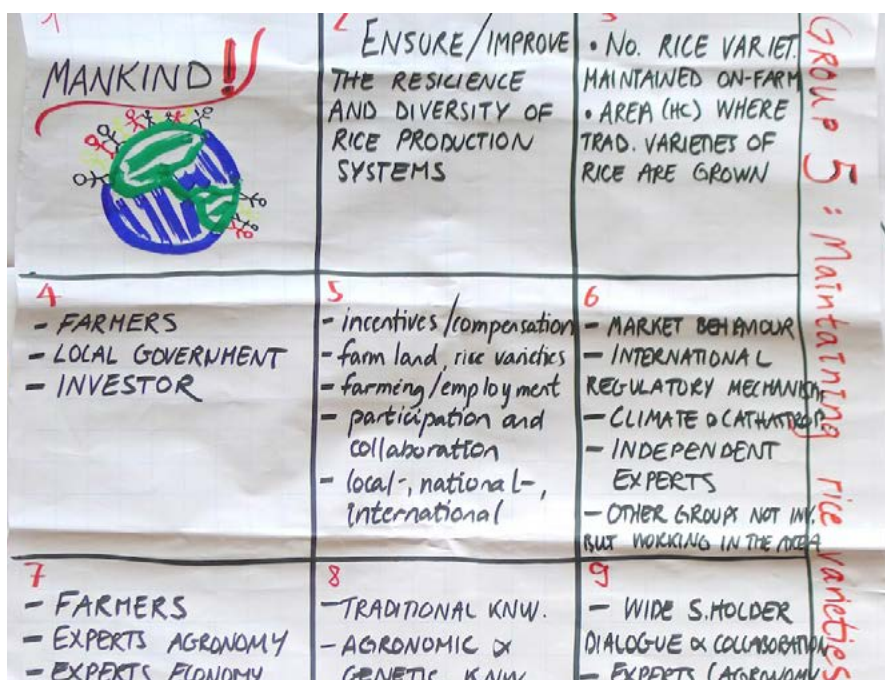 1
MANKIND!!
2
ENSURE/IMPROVE
THE RESICIENCE
AND DIVERSITY OF
RICE PRODUCTION
SYSTEMS
3
• NO. RICE VARIET.
MAINTAINED ON-FARM
• AREA (HC) WHERE
TRAD. VARIETIES OF
RICE ARE GROWN
4
- FARMERS
- LOCAL GOVERNMENT
- INVESTOR
5
- incentives/compensation
- farm land, rice varieties
- farming/employment
- participation and
collaboration
- local-, national-,
international
6
- MARKET BEHAVIOUR
- INTERNATIONAL
REGULATORY MECHANISM
- CLIMATE
- INDEPENDENT
EXPERTS
- OTHER GROUPS NOT INV.
BUT WORKING IN THE AREA
7
- FARMERS
- EXPERTS AGRONOMY
- EXPERTS ECONOMY
8
- TRADITIONAL KNW.
- AGRONOMIC &
GENETIC KNW.
9
- WIDE S.HOLDER
DIALOGUE & COLLABORATION
- EXPERTS (AGRONOMY
GROUP 5: Maintaining rice varieties